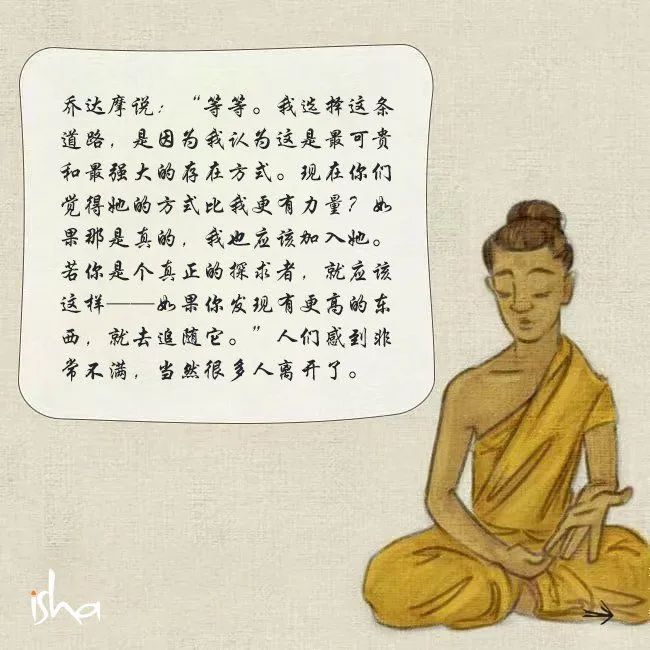 乔达摩说：“等等。我选择这条
道路，是因为我认为这是最可贵
和最强大的存在方式。现在你们
觉得她的方式比我更有力量？如
果那是真的，我也应该加入她。
若你是个真正的探求者，就应该
这样——如果你发现有更高的东
西，就去追随它。”人们感到非
常不满，当然很多人离开了。
isha